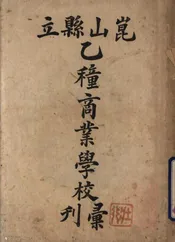 崑山縣立
乙種商業學校彙刊